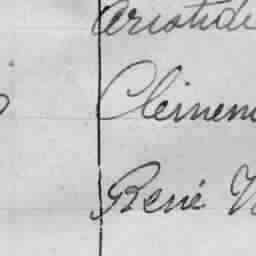 Aristide
Clémen
René